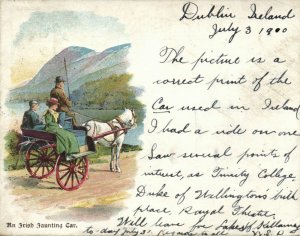 Dublin Ireland
July 3 1900
The picture is a
correct print of the
Car used in Ireland
I had a ride on one
Saw several points of
interest, as Trinity College
Duke of Wellingtons birth
place, Royal Theatre.
Will leave for Lakes of Killarney
to-day July 3.
An Irish Jaunting Car.